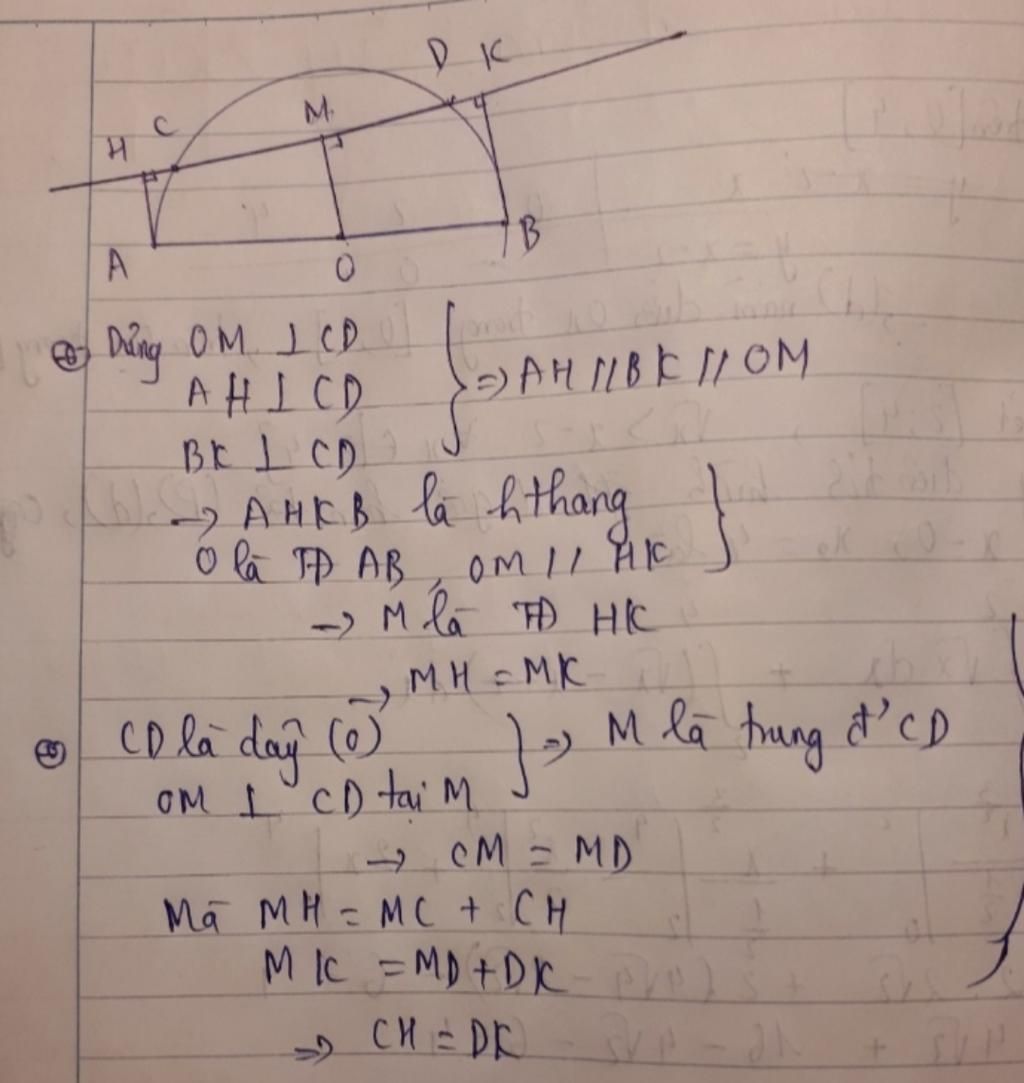 D K
M
C
H
A
O
B
Dựng OM ⊥ CD
AH ⊥ CD
BK ⊥ CD
⇒ AH // BK // OM
→ AHKB là hthang
O là TĐ AB, OM // HK
→ M là TĐ HK
→ MH = MK
CD là dây (O)
OM ⊥ CD tại M
⇒ M là trung đ' CD
→ CM = MD
Mà MH = MC + CH
MK = MD + DK
⇒ CH = DK